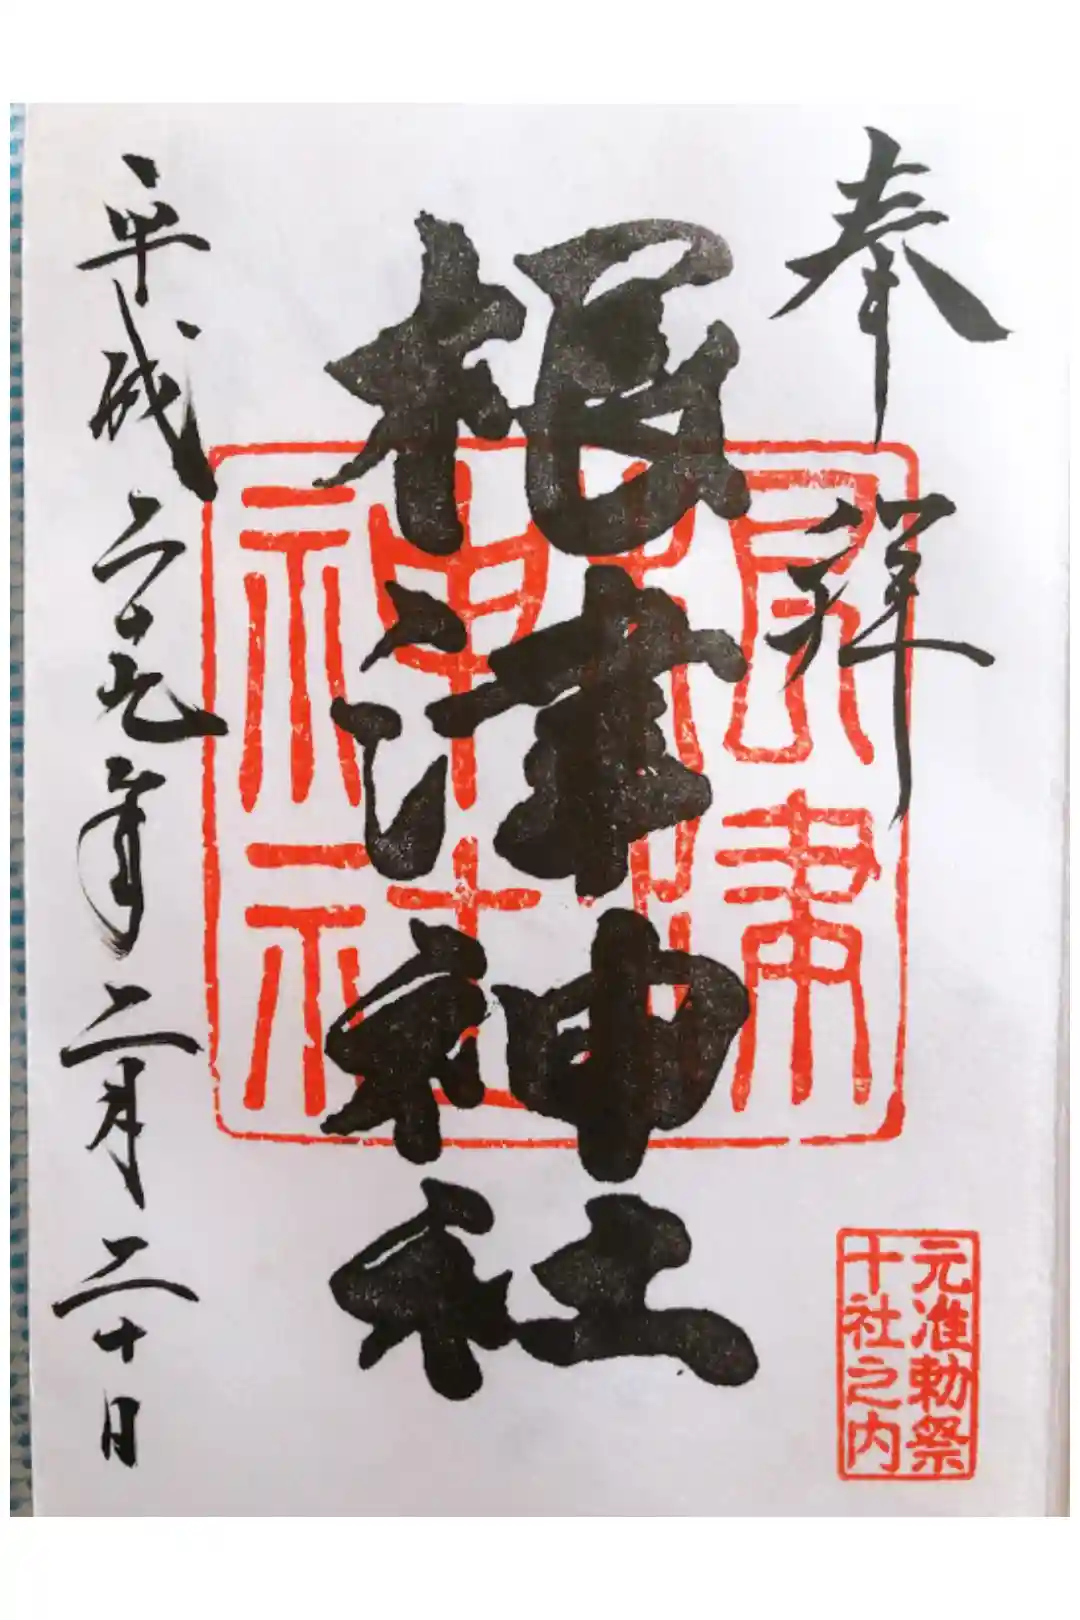 奉拝
元准勅祭
十社之内
根津神社
根津
神社
平成二十九年二月二十日